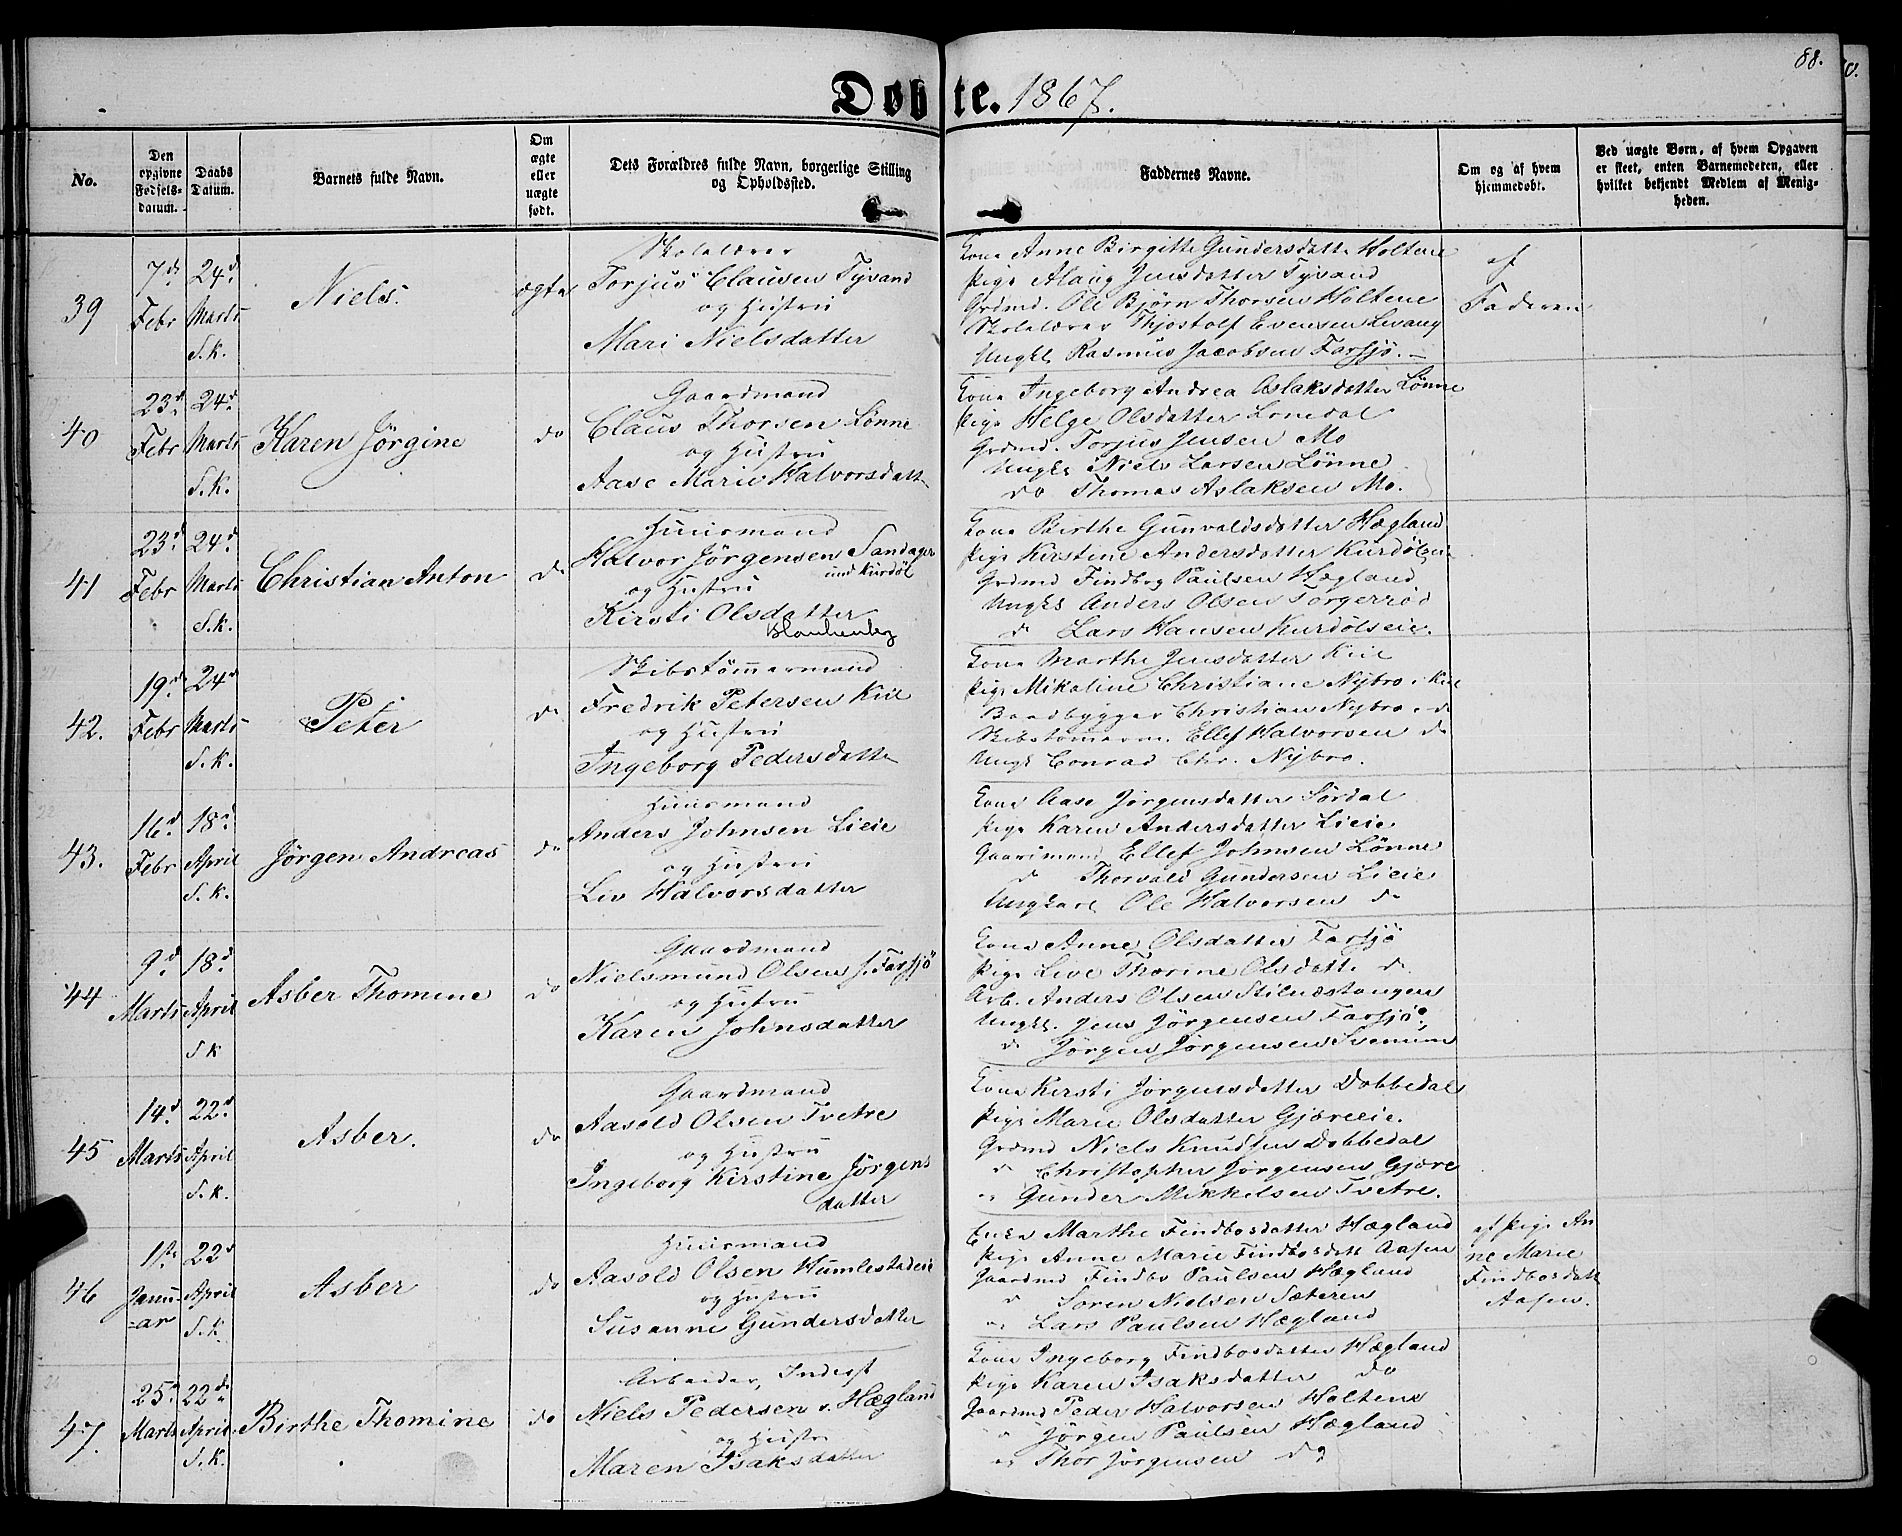 88.
Døbte. 1867.
No.
Den opgivne Fødselsdatum.
Daabs Datum.
Barnets fulde Navn.
Om ægte eller uægte født.
Dets Forældres fulde Navn, borgerlige Stilling og Opholdssted.
Faddernes Navne.
Om og af hvem hjemmedøbt.
Ved uægte Børn, af hvem Opgaven er skeet, enten Barnemoderen, eller hvilket bekjendt Medlem af Menigheden.
39
7de Febr
24d. Marts S.k.
Niels.
ægte
Skolelærer
Torjus Clausen Tyvand
og Hustru
Mari Nielsdatter
Kone Anne Birgitte Gundersdatte Holtene
Pige Alaug Jensdatter Tyvand
Grdmd. Ole Bjørn Thorsen Holtene
Skolelærer Thjostolf Evensen Levang
Ungk. Rasmus Jacobsen Farsjø.
af
Faderen
40
23d. Febr
24d. Marts S.k.
Karen Jørgine
do
Gaardmand
Claus Thorsen Lønne
og Hustru
Aase Marie Halvorsdatte
Kone Ingeborg Andrea Aslaksdatter Lønne
Pige Helge Olsdatter Lonedal
Grdmd. Torjus Jensen Mo
Ungk. Niels Larsen Lønne
do Thomas Aslaksen Mo.
41
23d. Febr
24d. Marts S.k.
Christian Anton
do
Huusmand
Halvor Jørgensen Sandager
und Kurdøl
og Hustru
Kirsti Olsdatter
Kone Birthe Gunvaldsdatter Hægland
Pige Kirstine Andersdatter Kurdøl
Grdmd Findbog Paulsen Hægland
Ungk. Anders Olsen Torgerrød
d. Lars Hansen Kurdølseie.
42.
19d. Febr
24d Marts S.k.
Peter
do
Blankenberg
Skibstømmermand
Fredrik Petersen Kiil
og Hustru
Ingeborg Pedersdatte
Kone Marthe Jensdatter Kiil
Pige Mikaline Christiane Nybro i Kiil
Baadbygger Christian Nybro i do
Skibstømerm. Ellef Halvorsen do
Ungk Conrad Chr. Nybro.
43.
16d. Febr
18d. April S.k.
Jørgen Andreas
do
Huusmand
Anders Johnsen Lieie
og Hustru
Liv Halvorsdatter
Kone Aase Jørgensdatter Sørdal
Pige Karen Andersdatter Lieie.
Gaardmand Ellef Johnsen Lønne
do Thorvald Gundersen Lieie
Ungkarl Ole Halvorsen do
44
9d. Marts
18d. April S.k
Asber Thomine
do
Gaardmand
Nielsmund Olsen f. Farsjø
og Hustru
Karen Johnsdatter
Kone Anne Olsdatter Farsjø
Pige Live Thorine Olsdatt. do
Arb. Anders Olsen Stilnestangen
Ungk. Jens Jørgensen Farsjø
do Jørgen Jørgensen Svenum
45
14d. Marts
22d. April S.k.
Asber.
do
Gaardmand
Aasold Olsen Tvetre
og Hustru
Ingeborg Kirstine Jørgens
datter
Kone Kirsti Jørgensdatter Dobbedal
Pige Marie Olsdatter Gjereeie.
Grdmd Niels Knudsen Dobbedal
" Christopher Jørgensen Gjere
" Gunder Mikkelsen Tvetre.
46
1ste Januar
22d April S.k
Asber
do
Huusmand
Aasold Olsen Humlestadeie
og Hustru
Susanne Gundersdatter
Enke Marthe Findbosdatter Hægland
Pige Anne Marie Findbosdatt Aasen
Gaardmd Findbo Paulsen Hægland
" Soren Nielsen Sæteren
" Lars Paulsen Hægland
af Pige An
ne Marie
Findbosdatt
Aasen.
47.
25d Marts
22de April S.k.
Birthe Thomine
do
Arbeider, Inderst
Niels Pedersen v. Hægland
og Hustr
Maren Isaksdatter
Kone Ingeborg Findbosdatter Hægland
Pige Karen Isaksdatter do
Gaardmd Peder Halvorsen Holtene
" Jørgen Paulsen Hægland
" Thor Jørgensen do